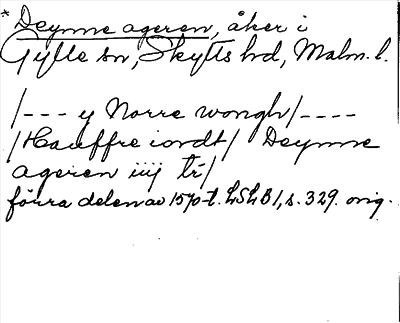 * Deynne ageren, åker i
Gylle sn, Skytts hd, Malm. l.
/--- y Norre wongh/----
/Hauffre iordt/ Deynne
ageren iiij tr/
förra delen av 1570-t. LSLB 1, s. 329. orig.